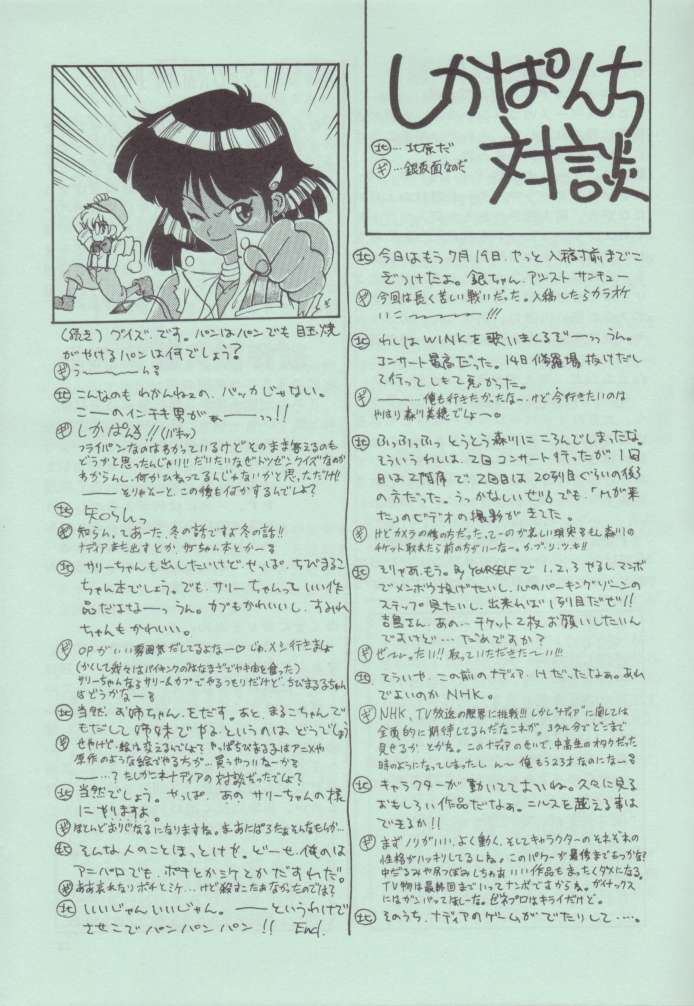 しかぱんち
対談
北…北原だ
ギ…銀仮面なのだ
北 今日はもう7月19日.やっと入稿寸前までこ
ぎつけたよ。銀ちゃん、アシストサンキュー
ギ 今回は長く苦しい戦いだった。入稿したらカラオケ
いこ〜〜〜!!!
北 わしはWINKを歌いまくるでーっっうん。
コンサート最高だった。14日修羅場抜けだし
て行ってしもて悪かった。
ギ ー…俺も行きたかったな〜.けど今行きたいのは
やはり森川美穂でしょ〜。
北 ふっふっふっ とうとう森川にころんでしまったな。
そういうわしは、2回コンサート行ったが、1回
目は2階席で、2回目は20列目ぐらいの後ろ
の方だった。うっかなしいぜ!でも「Mが来
た」のビデオの撮影がきてた。
ギ けどカメラの後の方だった、てーのが哀しい現実るもし森川の
チケット取れたら前の方がいーなー。カ・ブ・リ・ツ・キ!!
北 そりゃあ、もう。By YOURSELFで1,2,3やるし、マンボ
でメンボウ投げたいし、心のパーキングゾーンの
ステップ見たいし、出来れば1列目だぜ!!
吉鳥さん、あの…チケット2枚お願いしたいん
ですけど…だめですか?
ギ ぜーったい!!取っていただきたーい!!!
北 そういや、この前のナディア、Hだったなぁ。あれ
でよいのかNHK。
ギ NHK、TV放送の限界に挑戦!!しかし"ナディア"に関しては
全面的に期待してるんだなこれが。39話分でどこまで
見せるか とかね。このナディアのせいで、中高生のオタクだった
時のようになってしまったし ん〜 俺もう23才なのになーる
北 キャラクターが動いててよいね。久々に見る
おもしろい作品だなぁ。ニルスを越える事は
できるか!!
ギ まずノリがいい、よく動く、そしてキャラクターのそれぞれの
性格がハッキリしてるしね。このパワーが最後までもつかな?
中だるみや尻つぼみしちゃぁいい作品もまったくダメになる。
TV物は最終回までいってナンボですからね。ガイナックス
にはガンバってほしーな。ゼネプロはキライだけど。
北 そのうち、ナディアのゲームがでたりして…。
(続き)クイズ.です。パンはパンでも目玉焼
がやけるパンは何でしょう?
ギ う〜〜〜んる
北 こんなのもわかんねェの、バッカじゃない。
こーのインチキ男がぁーっっ!!
ギ しかぱんち!!(バキッ)
フライパンなのはわかっているけどそのまま答えるのも
どうかと思ったんじゃい!!だいたいなぜトツゼンクイズなのか
わからんし、何かひねってるんじゃないかと思っただけ!!
ーとりゃえーと、この後も何かするんでしょ?
北 知らんっ
ギ 知らん、てあーた、冬の話ですよ冬の話!!
ナディアまた出すとか、サリーちゃん本とかーる
北 サリーちゃんも出したいけど、やっぱ、ちびまるこ
ちゃん本でしょう。でも、サリーちゃんっていい作
品だよなーっうん。カブもかわいいし、すみれ
ちゃんもかわいい。
ギ OPがいい雰囲気だしてるよなー♡じゃ、メシ行きましょ
(かくして我々はバイキングのはなまさでヤキ肉を食った)
サリーちゃんならサリー&カブでやるつもりだけど、ちびまる子ちゃん
はどうかなーる
北 当然、お姉ちゃん、をだす。あと、まるこちゃんで
もだして姉妹でやる、というのはどうでしょう
ギ せやけど、絵は変えるんでしょ?やっぱちびまる子はアニメや
原作のような絵でやる方が…買うやついなーかる
ー…?たしかこれナディアの対談だったでしょ?
北 当然でしょう。やっぱ、あのサリーちゃんの様
にやりますよ。
ギ ほとんどおりじなるになりますね。ま、あにぱろだぁそんなもんか…
北 そんな人のことほっとけを。どーせ、俺のは
アニパロでも、ポチとかミケとかだすわだ。
ギ ああ哀れなりポチとミケ…けど殺すこたぁなかったのでは?
北 いいじゃんいいじゃん。ーというわけで
させこでパンパンパン!! End.